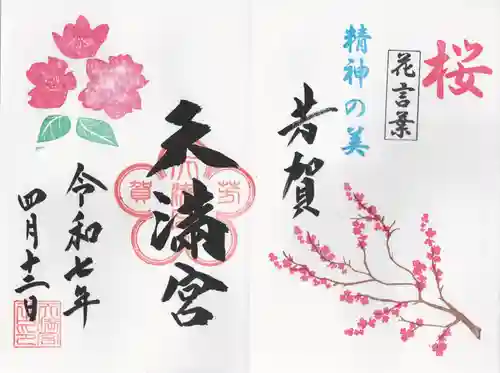 桜
花言葉
精神の美
芳賀
天満宮
賀
芳
令和七年
四月十二日